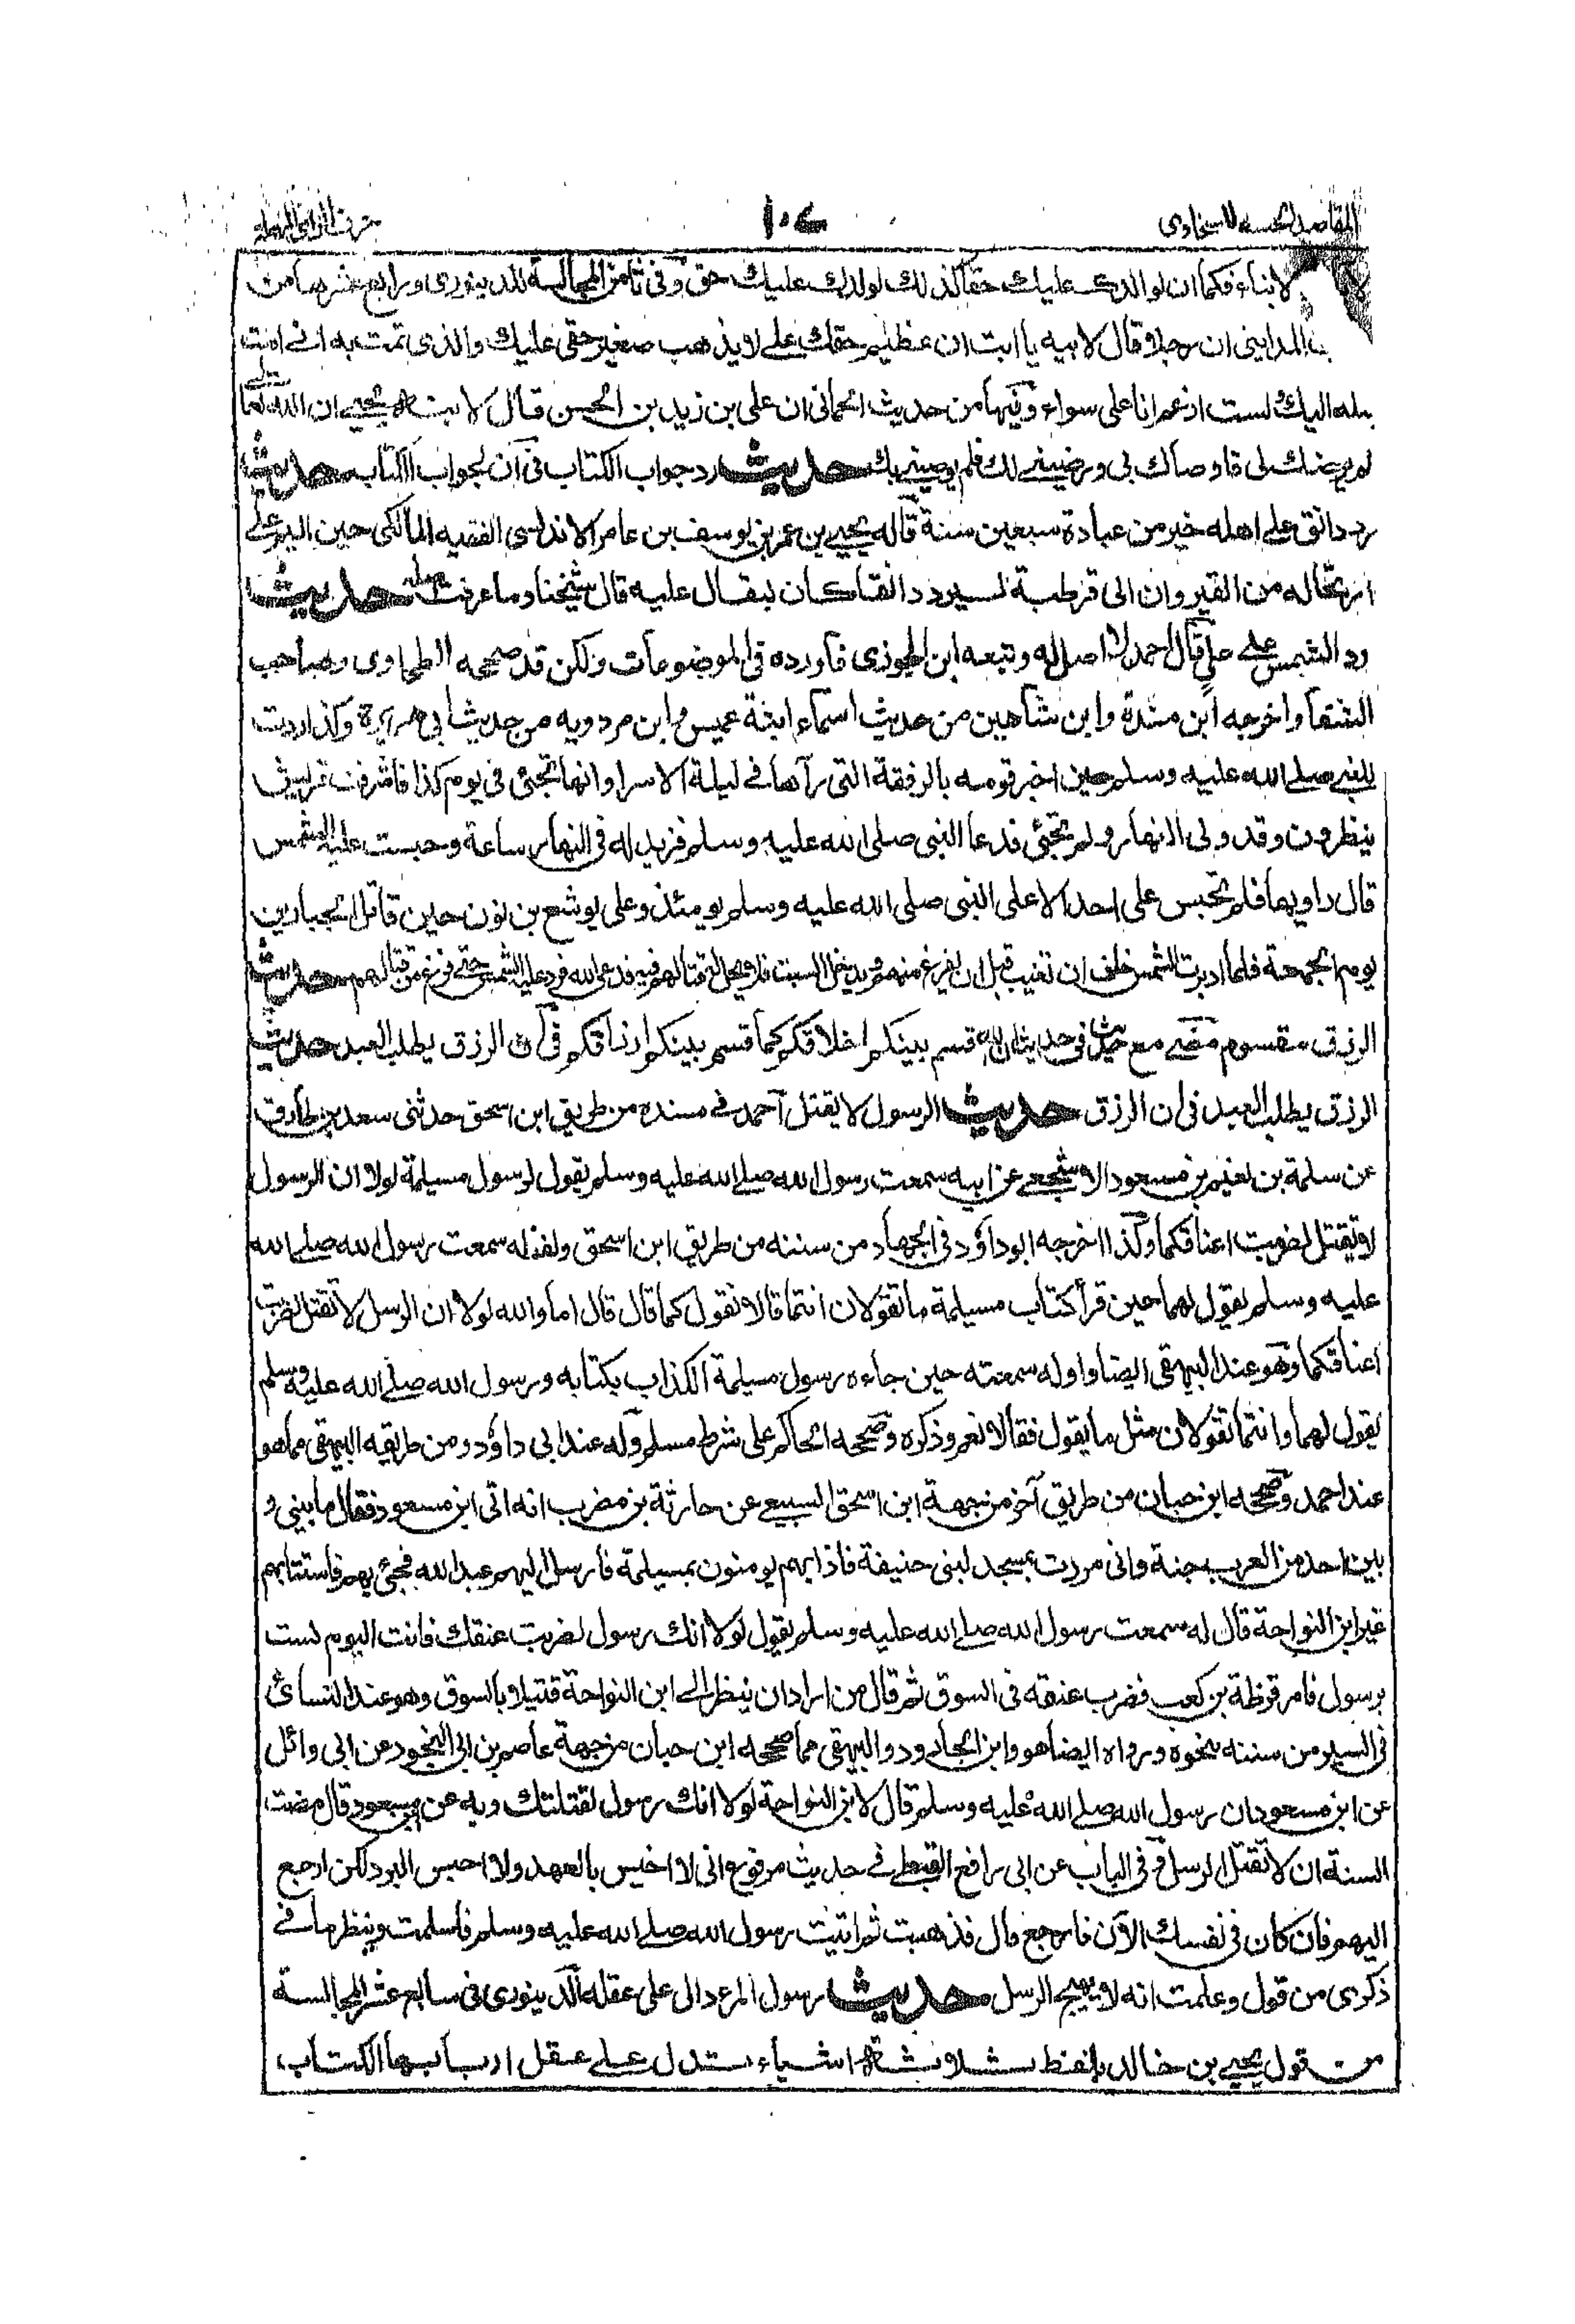 المقاصد الحسنة للسخاوى
١٠٤
حرف الراء المهملة
لابناء فكما ان لوالدك عليك حقا كذلك لولدك عليك حق وفى ثامن المجالسة للدينورى ورابع عشرها من
المداينى ان رجلا قال لابيه يا ابت ان عظيم حقك على لا يذهب صغير حقى عليك والذى تمت به الى امت
بمثله اليك ولست ازعم انا على سواء وفيها من حديث الحمانى ان على بن زيد بن الحسين قال لابنه يحيى ان الله تعالى
لم يرضك لى فاوصاك بى ورضينى لك فلم يوصينى بك حديث رد جواب الكتاب فى ان لجواب الكتاب حديث
رد دانق على اهله خير من عبادة سبعين سنة قاله يحيى بن عمر بن يوسف بن عامر الاندلسى الفقيه المالكى حين اليم على
ارتحاله من القيروان الى قرطبة ليرد دانقا كان لبقال عليه قال شيخنا وما عرفت اصله حديث
رد الشمس على على قال احمد لا اصل له وتبعه ابن الجوزى فاورده فى الموضوعات ولكن قد صححه الطحاوى وصاحب
الشفا واخرجه ابن مندة وابن شاهين من حديث اسماء ابنة عميس وابن مردويه من حديث ابى هريرة وكذا ردت
للنبى صلى الله عليه وسلم حين اخبر قومه بالرفقة التى رآها فى ليلة الاسرا وانها تجئ فى يوم كذا فاشرفت قريش
ينظرون وقد ولى النهار ولم تجئ فدعا النبى صلى الله عليه وسلم فزيد له فى النهار ساعة وحبست عليه الشمس
قال راويها فلم تحبس على احد الا على النبى صلى الله عليه وسلم يومئذ وعلى يوشع بن نون حين قاتل الجبارين
يوم الجمعة فلما ادبرت الشمس خاف ان تغيب قبل ان يفرغ منهم ويدخل السبت فلا يحل له قتالهم فيه فدعا الله فرد عليه الشمس حتى فرغ من قتالهم حديث
الرزق مقسوم مضى مع حديث فى حديث ان الله قسم بينكم اخلاقكم كما قسم بينكم ارزاقكم فى ان الرزق يطلب العبد حديث
الرزق يطلب العبد فى ان الرزق حديث الرسول لا يقتل احمد فى مسنده من طريق ابن اسحق حدثنى سعد بن طارق
عن سلمة بن نعيم بن مسعود الاشجعى عن ابيه سمعت رسول الله صلى الله عليه وسلم يقول لرسول مسيلمة لولا ان الرسول
لا يقتل لضربت اعناقكما وكذا اخرجه ابوداؤد فى الجهاد من سننه من طريق ابن اسحق ولفظه سمعت رسول الله صلى الله
عليه وسلم يقول لهما حين قرأ كتاب مسيلمة ما تقولان انتما قالا نقول كما قال قال اما والله لولا ان الرسل لا تقتل لضربت
اعناقكما وهو عند البيهقى ايضا واوله سمعته حين جاءه رسول مسيلمة الكذاب بكتابه ورسول الله صلى الله عليه وسلم
يقول لهما وانتما تقولان مثل ما يقول فقالا نعم وذكره وصححه الحاكم على شرط مسلم وله عند ابى داؤد ومن طريقه البيهقى مما هو
عند احمد وصححه ابن حبان من طريق آخر من جهة ابن اسحق السبيعى عن حارثة بن مضرب انه اتى ابن مسعود فقال ما بينى و
بين احد من العرب جنة وانى مررت بمسجد لبنى حنيفة فاذا بهم يومنون بمسيلمة فارسل اليهم عبد الله فجئ بهم فاستتابهم
غير ابن النواحة قال له سمعت رسول الله صلى الله عليه وسلم يقول لولا انك رسول لضربت عنقك فانت اليوم لست
برسول فامر قرظة بن كعب فضرب عنقه فى السوق ثم قال من اراد ان ينظر الى ابن النواحة قتيلا بالسوق وهو عند النسائى
فى السير من سننه بنحوه ورواه ايضا هو وابن الجارود والبيهقى مما صححه ابن حبان من جهة عاصم بن ابى النجود عن ابى وائل
عن ابن مسعود ان رسول الله صلى الله عليه وسلم قال لابن النواحة لولا انك رسول لقتلتك وبه عن ابن مسعود قال مضت
السنة ان لا تقتل الرسل وفى الباب عن ابى رافع القبطى فى حديث مرفوع انى لا اخيس بالعهد ولا احبس البرد لكن ارجع
اليهم فان كان فى نفسك الآن فارجع قال فذهبت ثم اتيت رسول الله صلى الله عليه وسلم فاسلمت وينظر ما فى
ذكرى من قول وعلمت انه لا يهيج الرسل حديث رسول المرء دال على عقله الدينورى فى سابع عشر المجالسة
من قول يحيى بن خالد بلفظ ثلاثة اشياء تدل على عقل اربابها الكتاب